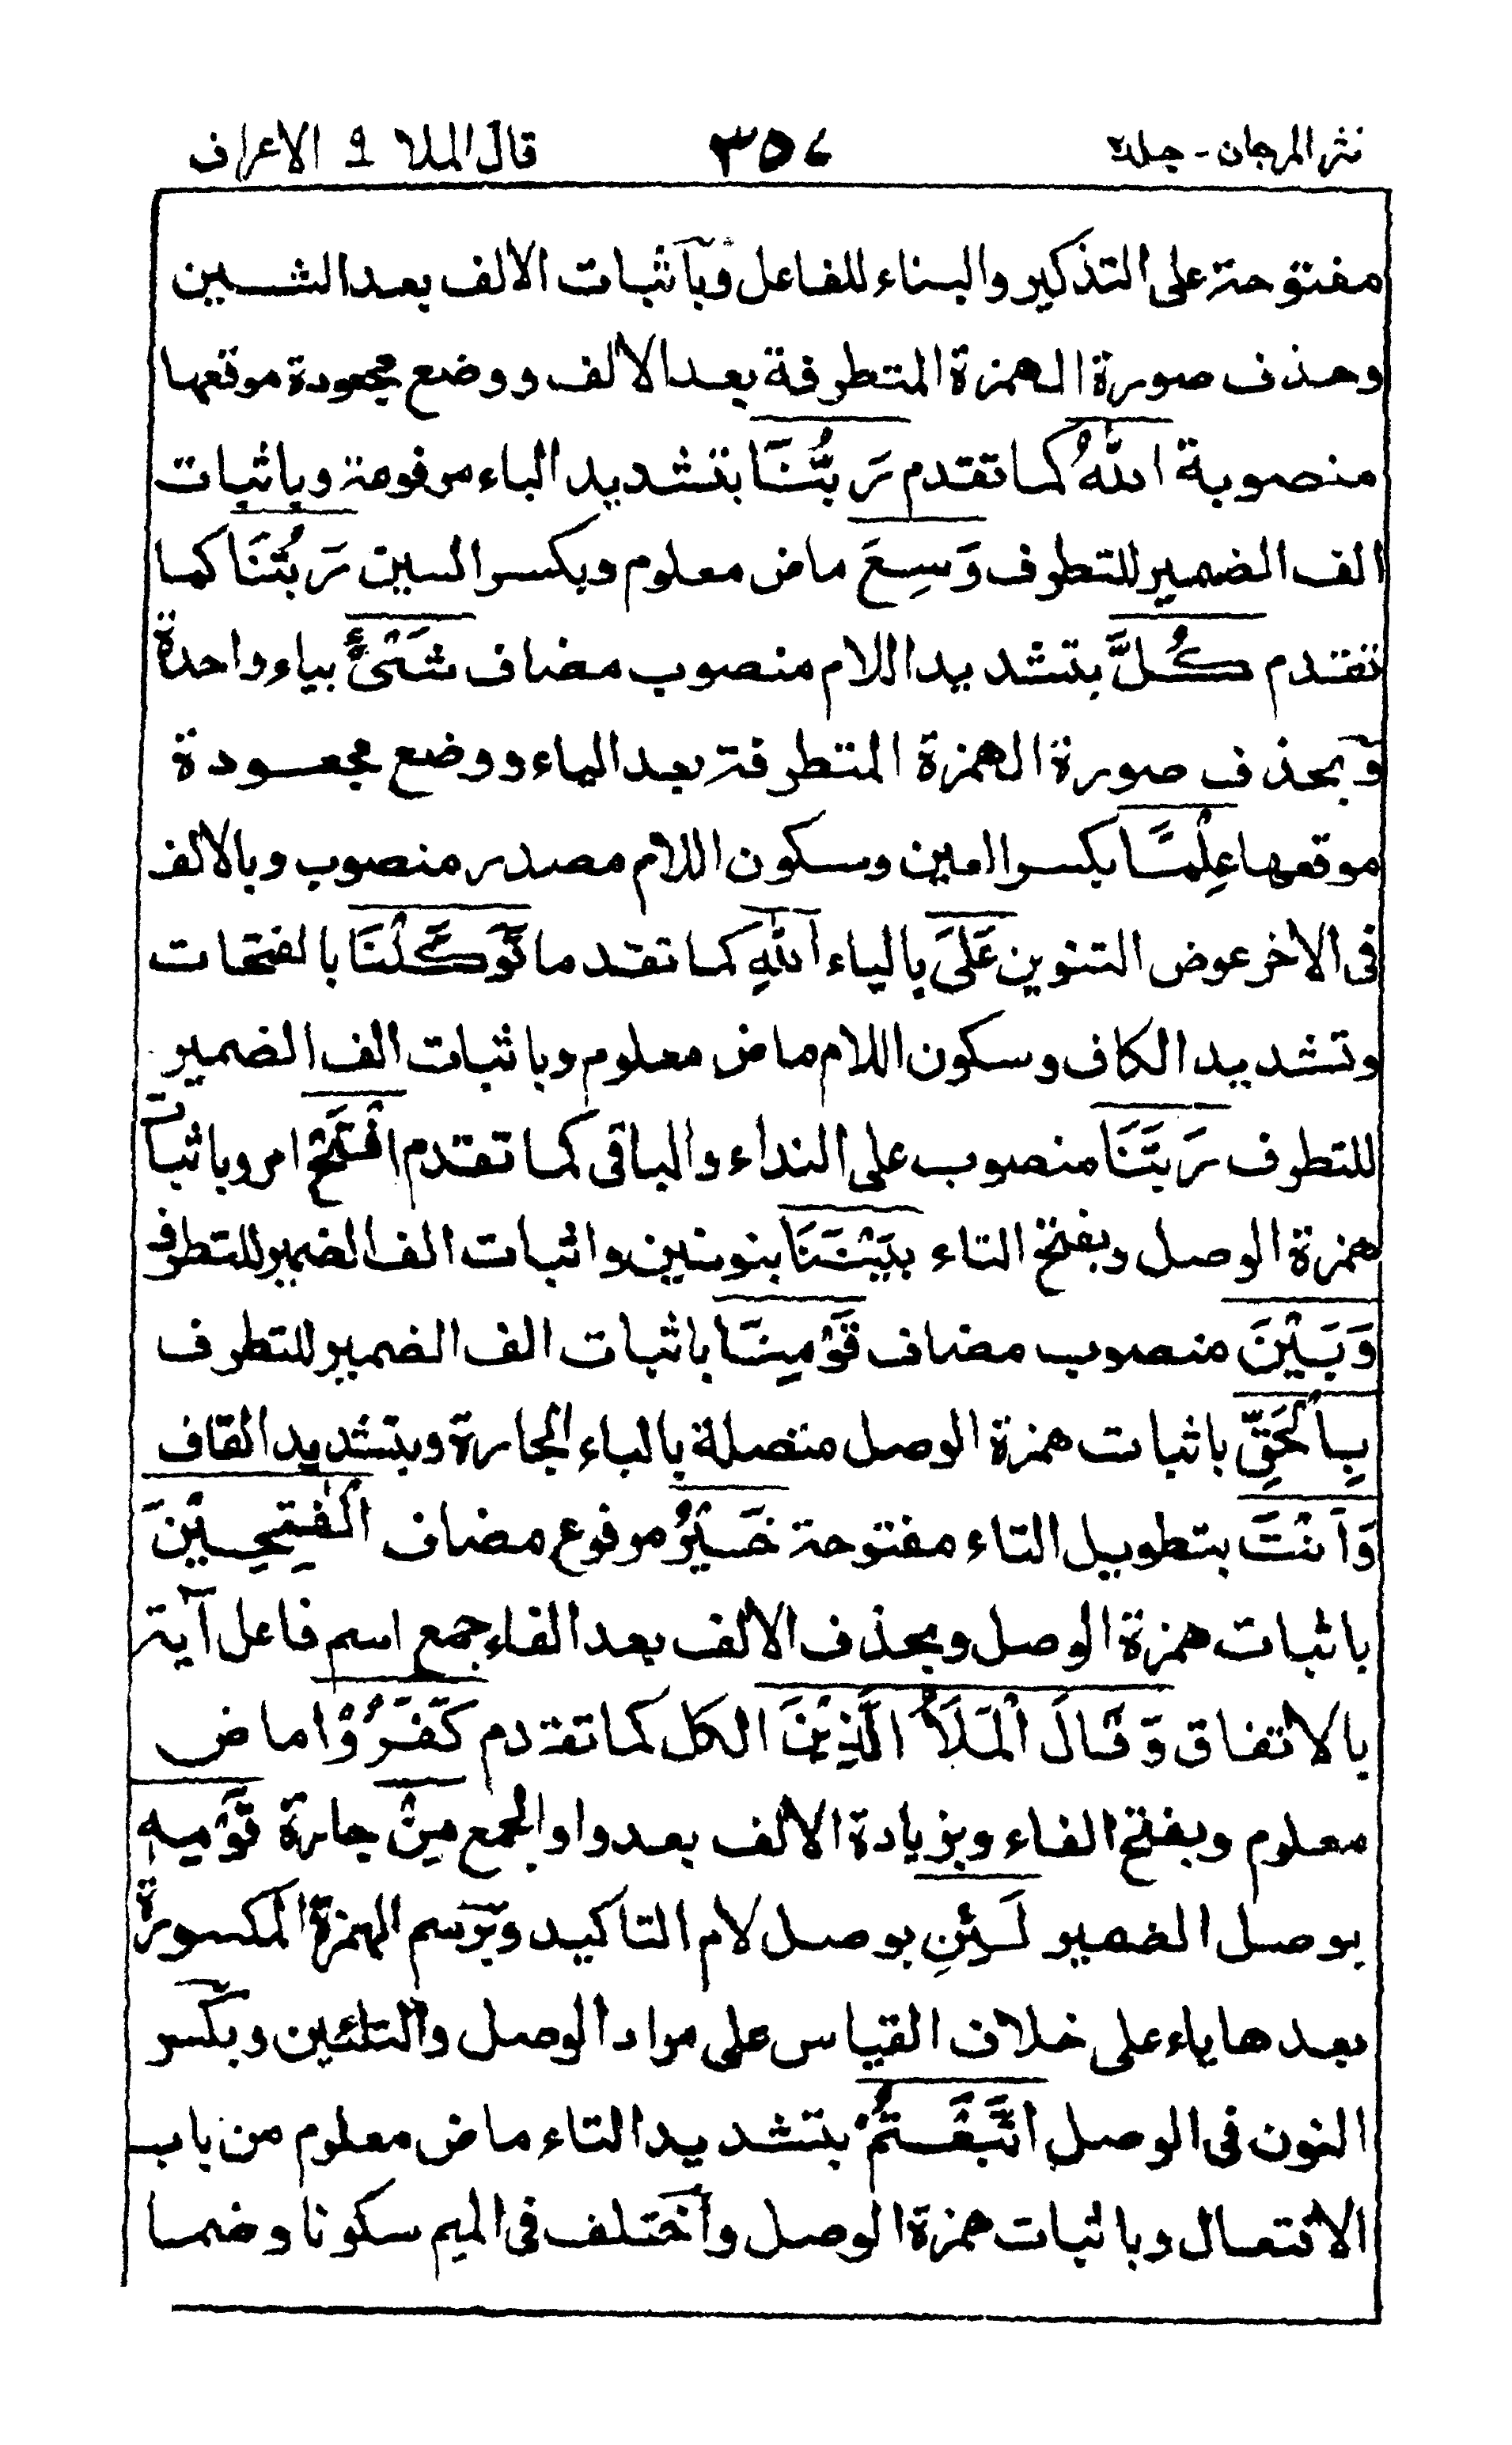 نثر المرجان - جلد۲ ۳۵۷ قال الملا ۹ الاعراف
مفتوحة على التذكير والبناء للفاعل وبآثبات الالف بعد الشين
وحذف صورة الهمزة المتطرفة بعد الالف ووضع مجعودة موقعها
منصوبة اللهُ كما تقدم رَبُّنَا بتشديد الباء مرفوعة وباثبات
الف الضمير للتطرف وَسِعَ ماض معلوم وبكسر السين رَبُّنَا كما
تقدم كُلَّ بتشديد اللام منصوب مضاف شَیْءٍ بياء واحدة
وبحذف صورة الهمزة المتطرفة بعد الياء ووضع مجعودة
موقعها عِلْمًا بكسر العين وسكون اللام مصدر منصوب وبالالف
فى الاخر عوض التنوين عَلَى بالياء اللهِ كما تقدم ما تَوَكَّلْنَا بالفتحات
وتشديد الكاف وسكون اللام ماض معلوم وباثبات الف الضمير
للتطرف رَبَّنَا منصوب على النداء والباقى كما تقدم افْتَحْ امر وباثبات
همزة الوصل وبفتح التاء بَيْنَنَا بنونين واثبات الف الضمير للتطرف
وَبَيْنَ منصوب مضاف قَوْمِنَا باثبات الف الضمير للتطرف
بِالْحَقِّ باثبات همزة الوصل متصلة بالباء الجارة وبتشديد القاف
وَاَنْتَ بتطويل التاء مفتوحة خَيْرُ مرفوع مضاف الْفٰتِحِيْنَ
باثبات همزة الوصل وبحذف الالف بعد الفاء جمع اسم فاعل آية
بالاتفاق وَقَالَ الْمَلَاُ الَّذِيْنَ الكل كما تقدم كَفَرُوْا ماض
معلوم وبفتح الفاء وبزيادة الالف بعد واو الجمع مِنْ جارة قَوْمِهٖ
بوصل الضمير لَئِنِ بوصل لام التاكيد وبرسم الهمزة المكسورة
بعدها ياء على خلاف القياس على مراد الوصل والتليين وبكسر
النون فى الوصل اتَّبَعْتُمْ بتشديد التاء ماض معلوم من باب
الافتعال وباثبات همزة الوصل واختلف فى الميم سكونا وضما